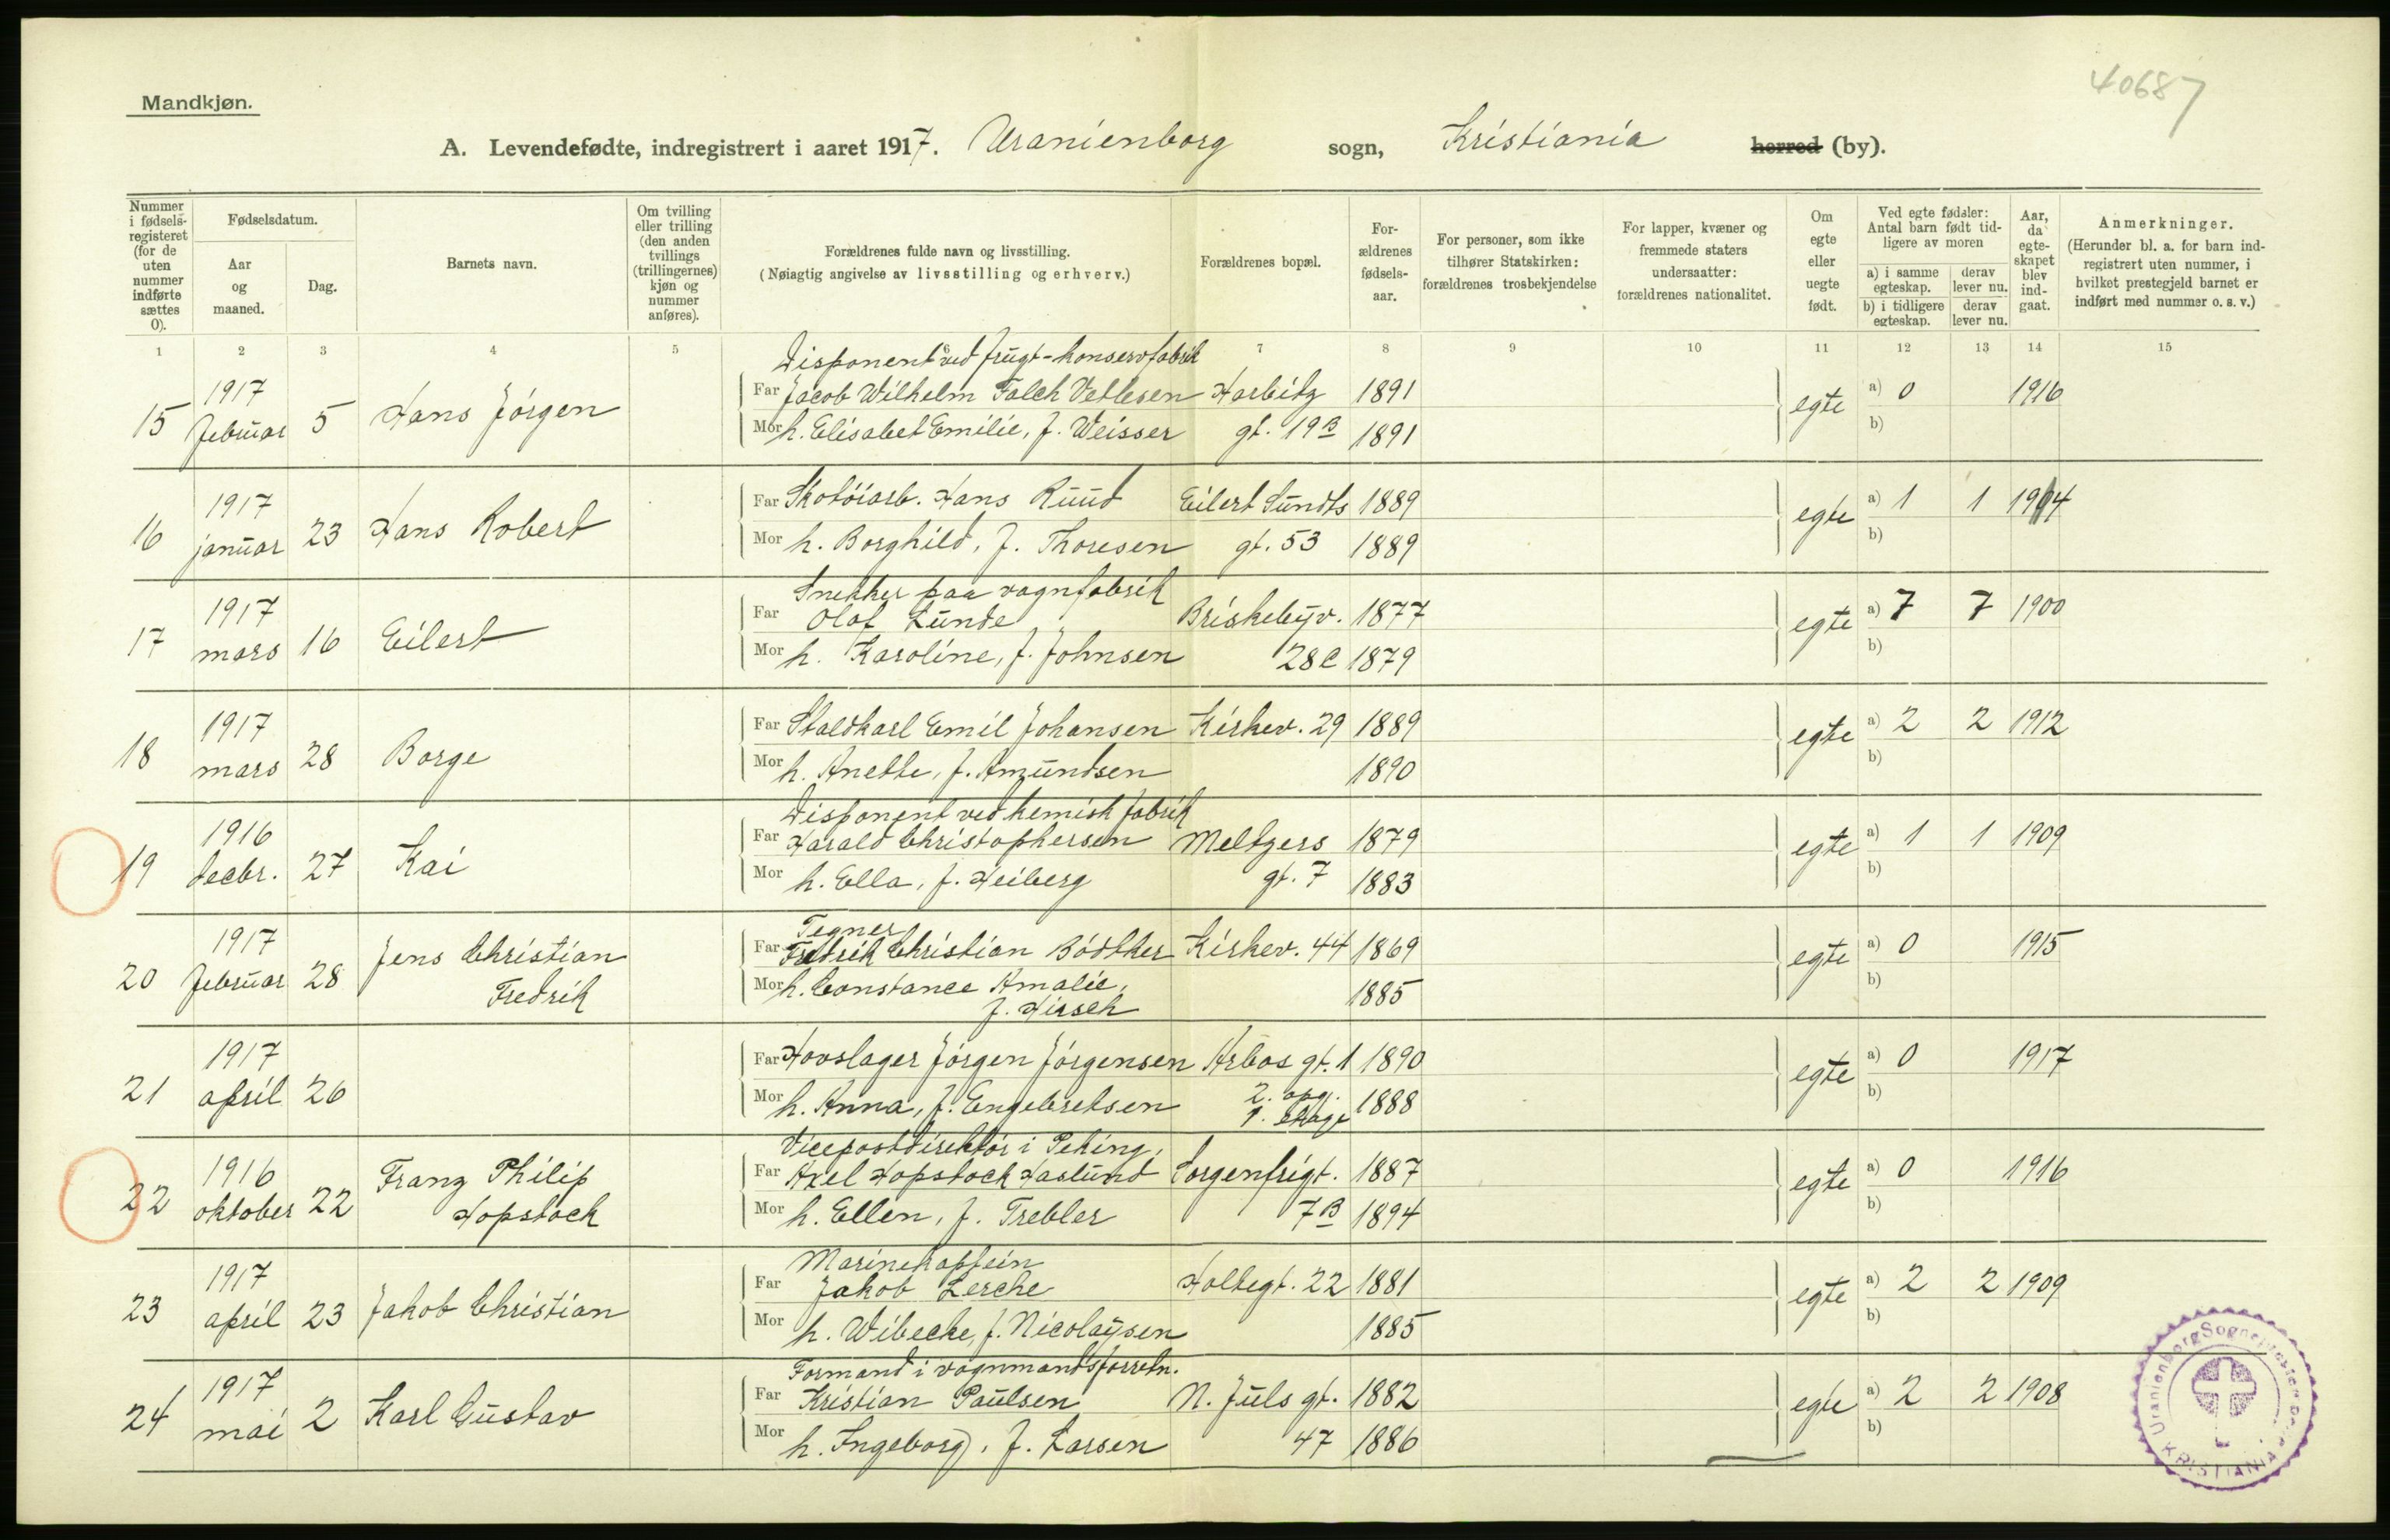 40687
Mandkjøn.
A. Levendefødte, indregistrert i aaret 1917. Uranienborg sogn, Kristiania herred (by).
Nummer i fødselsregisteret (for de uten nummer indførte sættes 0).
Fødselsdatum.
Aar og maaned.
Dag.
Barnets navn.
Om tvilling eller trilling (den anden tvillings (trillingernes) kjøn og nummer anføres).
Forældrenes fulde navn og livsstilling.
(Nøiagtig angivelse av livsstilling og erhverv.)
Forældrenes bopæl.
Forældrenes fødselsaar.
For personer, som ikke tilhører Statskirken: forældrenes trosbekjendelse
For lapper, kvæner og fremmede staters undersaatter: forældrenes nationalitet.
Om egte eller uegte født.
Ved egte fødsler: Antal barn født tidligere av moren
a) i samme egteskap. derav lever nu.
b) i tidligere egteskap. derav lever nu.
Aar, da egteskapet blev indgaat.
Anmerkninger.
(Herunder bl. a. for barn indregistrert uten nummer, i hvilket prestegjeld barnet er indført med nummer o. s. v.)
1 2 3 4 5 6 7 8 9 10 11 12 13 14 15
Disponent ved frugt-konservfabrik
15 1917 februar 5 Hans Jørgen Far Jacob Wilhelm Falch Vetlesen Harbitz 1891 egte a) 0 1916
Mor h. Elisabet Emilie, f. Weisser gt. 19B 1891 b)
16 1917 januar 23 Hans Robert Far Skotøiarb. Hans Ruud Eilert Sundts 1889 egte a) 1 1 1914
Mor h. Borghild, f. Thoresen gt. 53 1889 b)
Snekker paa vognfabrik
17 1917 mars 16 Eilert Far Olaf Lunde Briskebyv. 1877 egte a) 7 7 1900
Mor h. Karoline, f. Johnsen 28C 1879 b)
18 1917 mars 28 Borge Far Staldkarl Emil Johansen Kirkev. 29 1889 egte a) 2 2 1912
Mor h. Anette, f. Amundsen 1890 b)
Disponent ved kemisk fabrik
19 1916 decbr. 27 Kai Far Harald Christophersen Meltzers 1879 egte a) 1 1 1909
Mor h. Ella, f. Heiberg gt. 7 1883 b)
Tegner
20 1917 februar 28 Jens Christian Fredrik Far Fredrik Christian Bødtker Kirkev. 44 1869 egte a) 0 1915
Mor h. Constance Amalie, 1885 b)
f. Hirsch
21 1917 april 26 Far Hovslager Jørgen Jørgensen Arbos gt. 1 1890 egte a) 0 1917
Mor h. Anna, f. Engebretsen 2. opg. 1. etage 1888 b)
Vicepostdirektør i Peking,
22 1916 oktober 22 Franz Philip Hopstock Far Axel Hopstock Haslund Sorgenfrigt. 1887 egte a) 0 1916
Mor h. Ellen, f. Trebler 7B 1894 b)
Marinekaptein
23 1917 april 23 Jakob Christian Far Jakob Lerche Holtegt. 22 1881 egte a) 2 2 1909
Mor h. Wibecke, f. Nicolaysen 1885 b)
Formand i vognmandsforretn.
24 1917 mai 2 Karl Gustav Far Kristian Paulsen N. Juels gt. 1882 egte a) 2 2 1908
Mor h. Ingeborg, f. Larsen 47 1886 b)
Uranienborg
KRISTIANIA